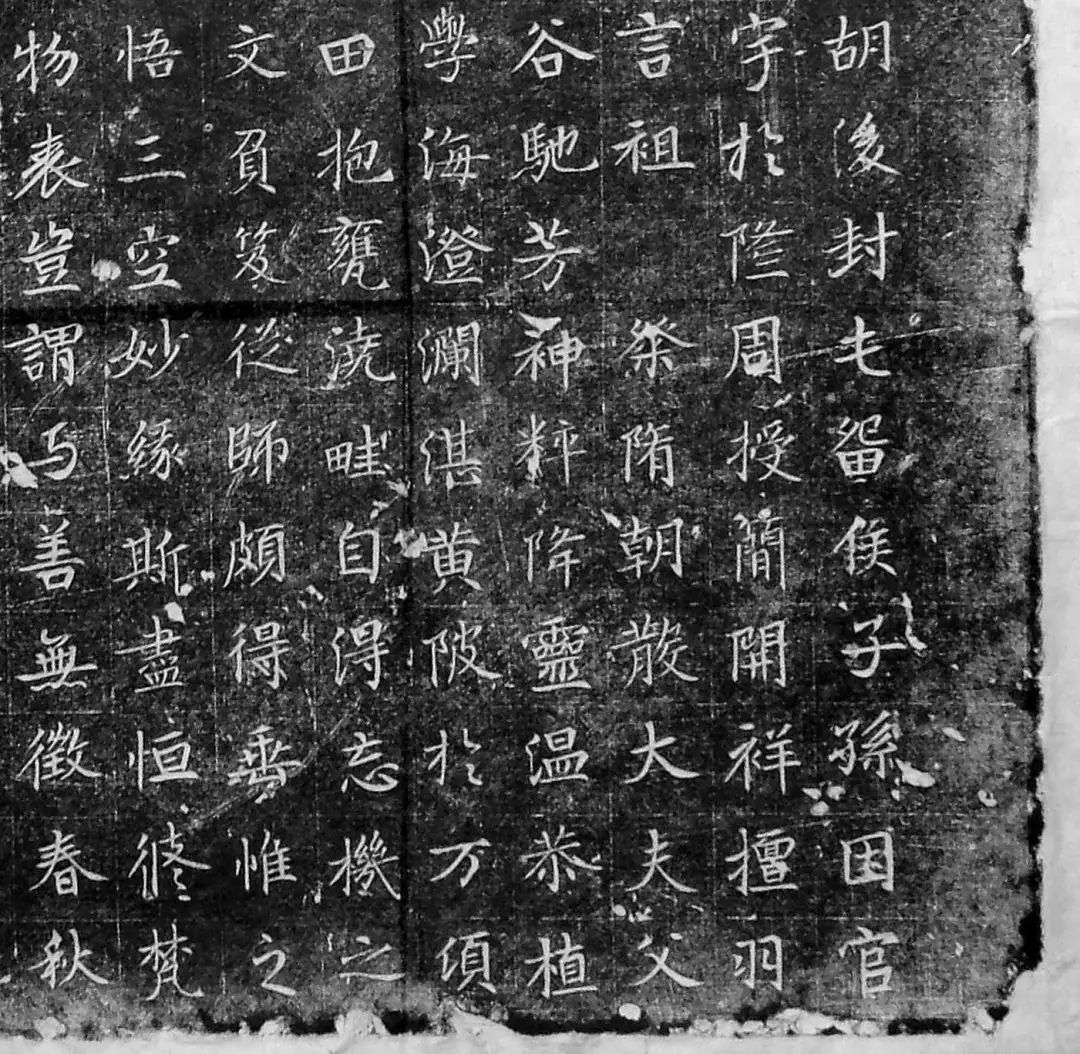 胡後封屯留侯子孫因官
宇於隆周授簡開祥擅羽
言祖 粲隋朝散大夫父
谷馳芳神粹降靈温恭植
學海澄瀾湛黄陂於万頃
田抱甕澆畦自得忘機之
文負笈從師頗得垂惟之
悟三空妙緣斯盡恒修梵
物表豈謂与善無徵春秋